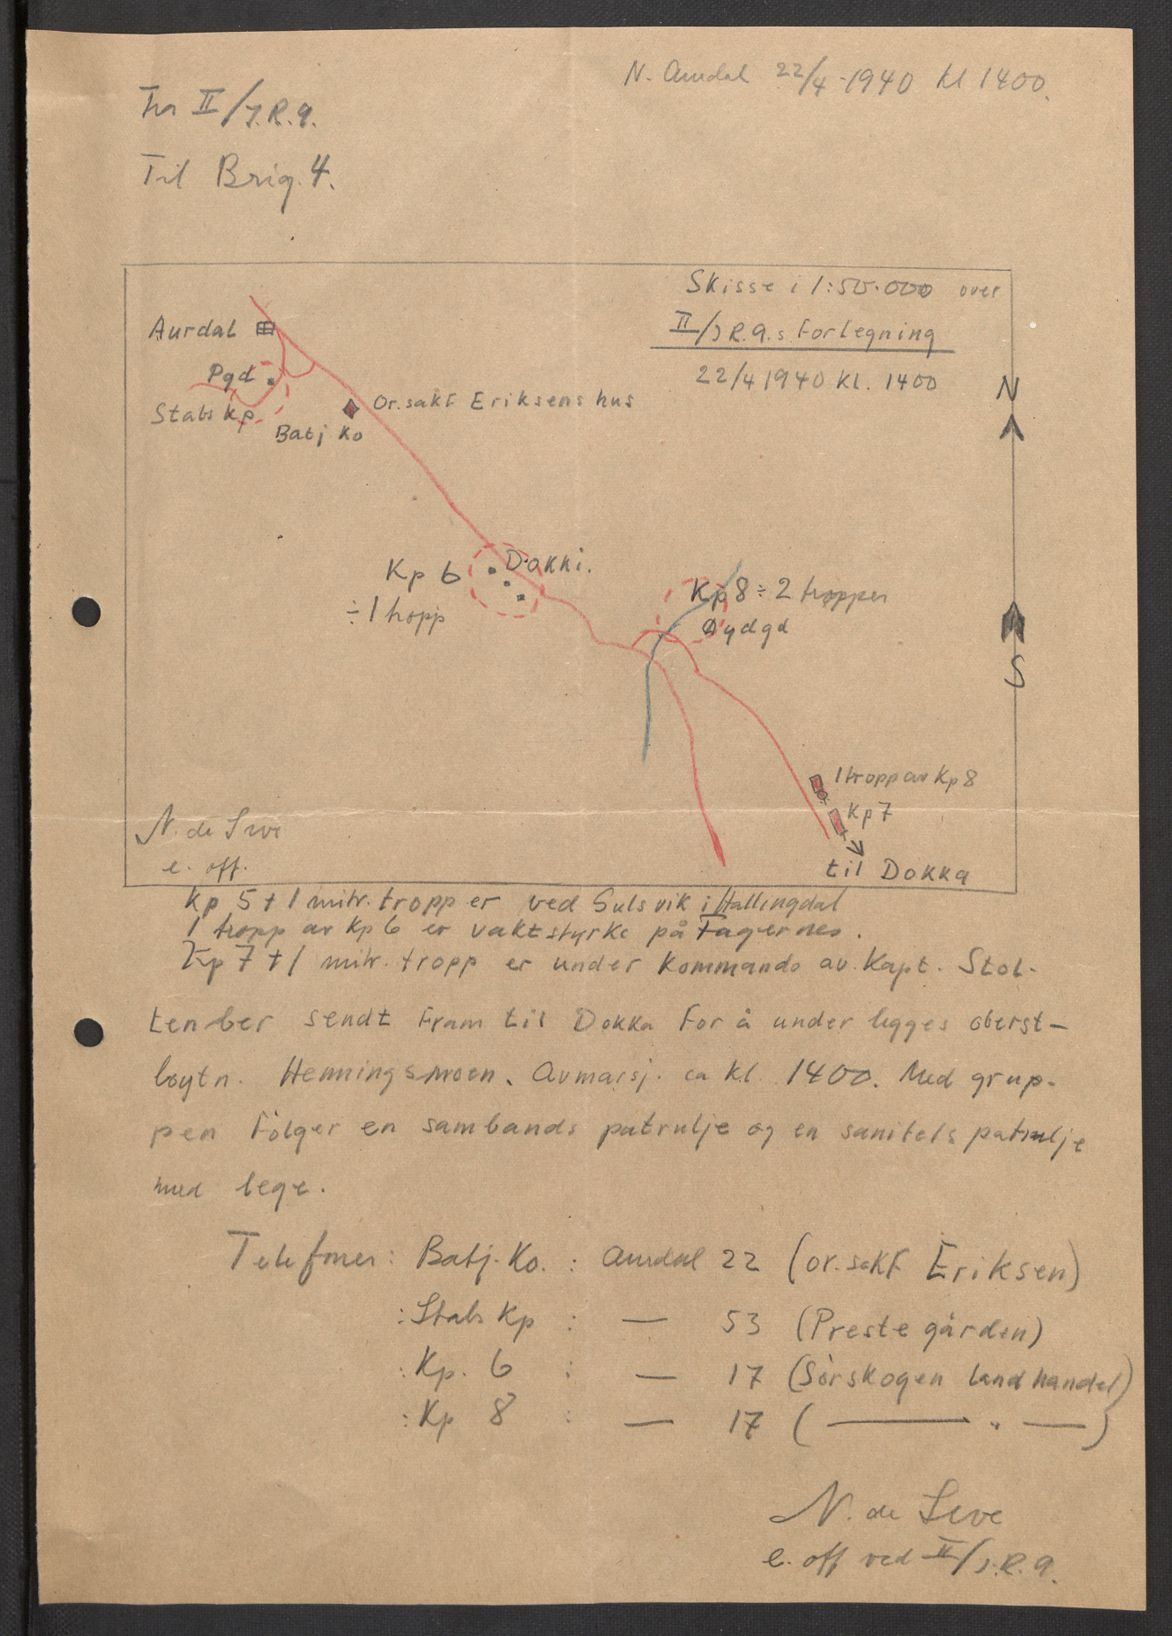 N. Aurdal 22/4-1940 kl 1400.
Fra II/J.R.9.
Til Brig. 4.
Skisse i 1:50.000 over
II/J.R.9.s Forlegning
22/4 1940 Kl. 1400
N
Aurdal
Pgd
Stabs Kp
Or.sakf Eriksens hus
Batj Ko
Kp 6
÷ 1 tropp
Dokki.
Kp 8 ÷ 2 tropper
Øydgd
S
1 tropp av Kp 8
Kp 7
til Dokka
N. de Seve
e. off.
Kp 5 + 1 mitr. tropp er ved Sulsvik i Hallingdal
1 tropp av Kp 6 er vaktstyrke på Fagernes.
Kp 7 + 1 mitr. tropp er under Kommando av Kapt. Stol-
tenber sendt Fram til Dokka For å underlegges oberst-
løytn. Henningsmoen. Avmarsj. ca kl. 1400. Med grup-
pen Følger en sambands patrulje og en sanitets patrulje
med lege.
Telefoner: Batj. Ko. : Aurdal 22 (or.sakf Eriksen)
: Stabs Kp : — 53 (Prestegården)
: Kp. 6 : — 17 (Sørskogen Landhandel)
: Kp 8 : — 17 ( — " — )
N. de Seve
e. off ved II/J.R.9.